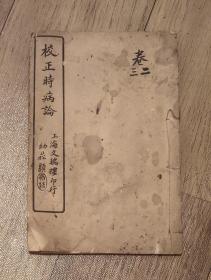 校正時病論
上海文瑞樓印行
卷二三